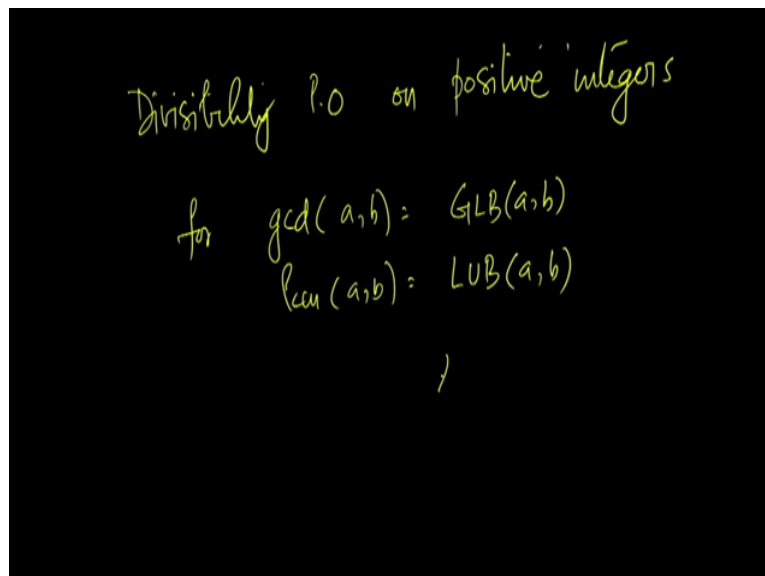 Divisibility P.O on positive integers
for gcd(a,b) = GLB(a,b)
lcm(a,b) = LUB(a,b)